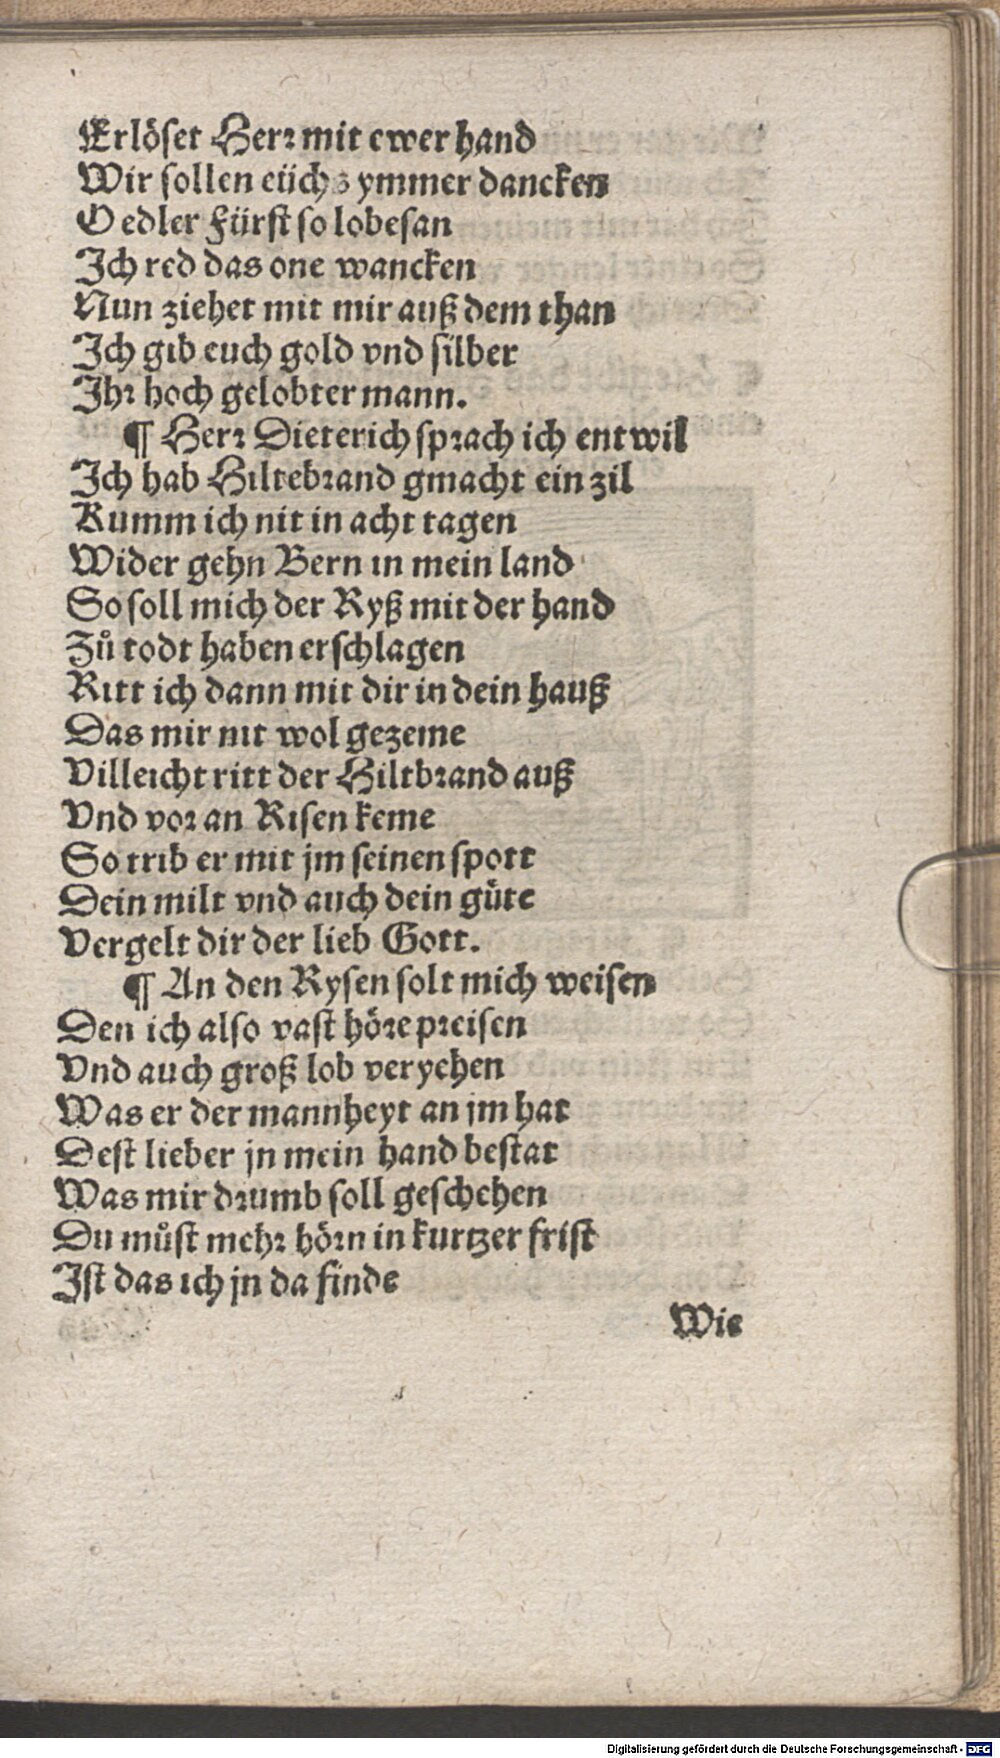 Erlöset Herr mit ewer hand
Wir sollen eüchs ymmer dancken
O edler Fürst so lobesan
Ich red das one wancken
Nun ziehet mit mir auß dem than
Ich gib euch gold vnd silber
Ihr hoch gelobter mann.
¶ Herr Dieterich sprach ich entwil
Ich hab Hiltebrand gmacht ein zil
Kumm ich nit in acht tagen
Wider gehn Bern in mein land
So soll mich der Ryß mit der hand
Zů todt haben erschlagen
Ritt ich dann mit dir in dein hauß
Das mir nit wol gezeme
Villeicht ritt der Hiltbrand auß
Vnd vor an Risen keme
So trib er mit jm seinen spott
Dein milt vnd auch dein güte
Vergelt dir der lieb Gott.
¶ An den Rysen solt mich weisen
Den ich also vast höre preisen
Vnd auch groß lob veryehen
Was er der mannheyt an jm hat
Dest lieber jn mein hand bestat
Was mir drumb soll geschehen
Du můst mehr hörn in kurtzer frist
Ist das ich jn da finde
Wie
Digitalisierung gefördert durch die Deutsche Forschungsgemeinschaft - DFG